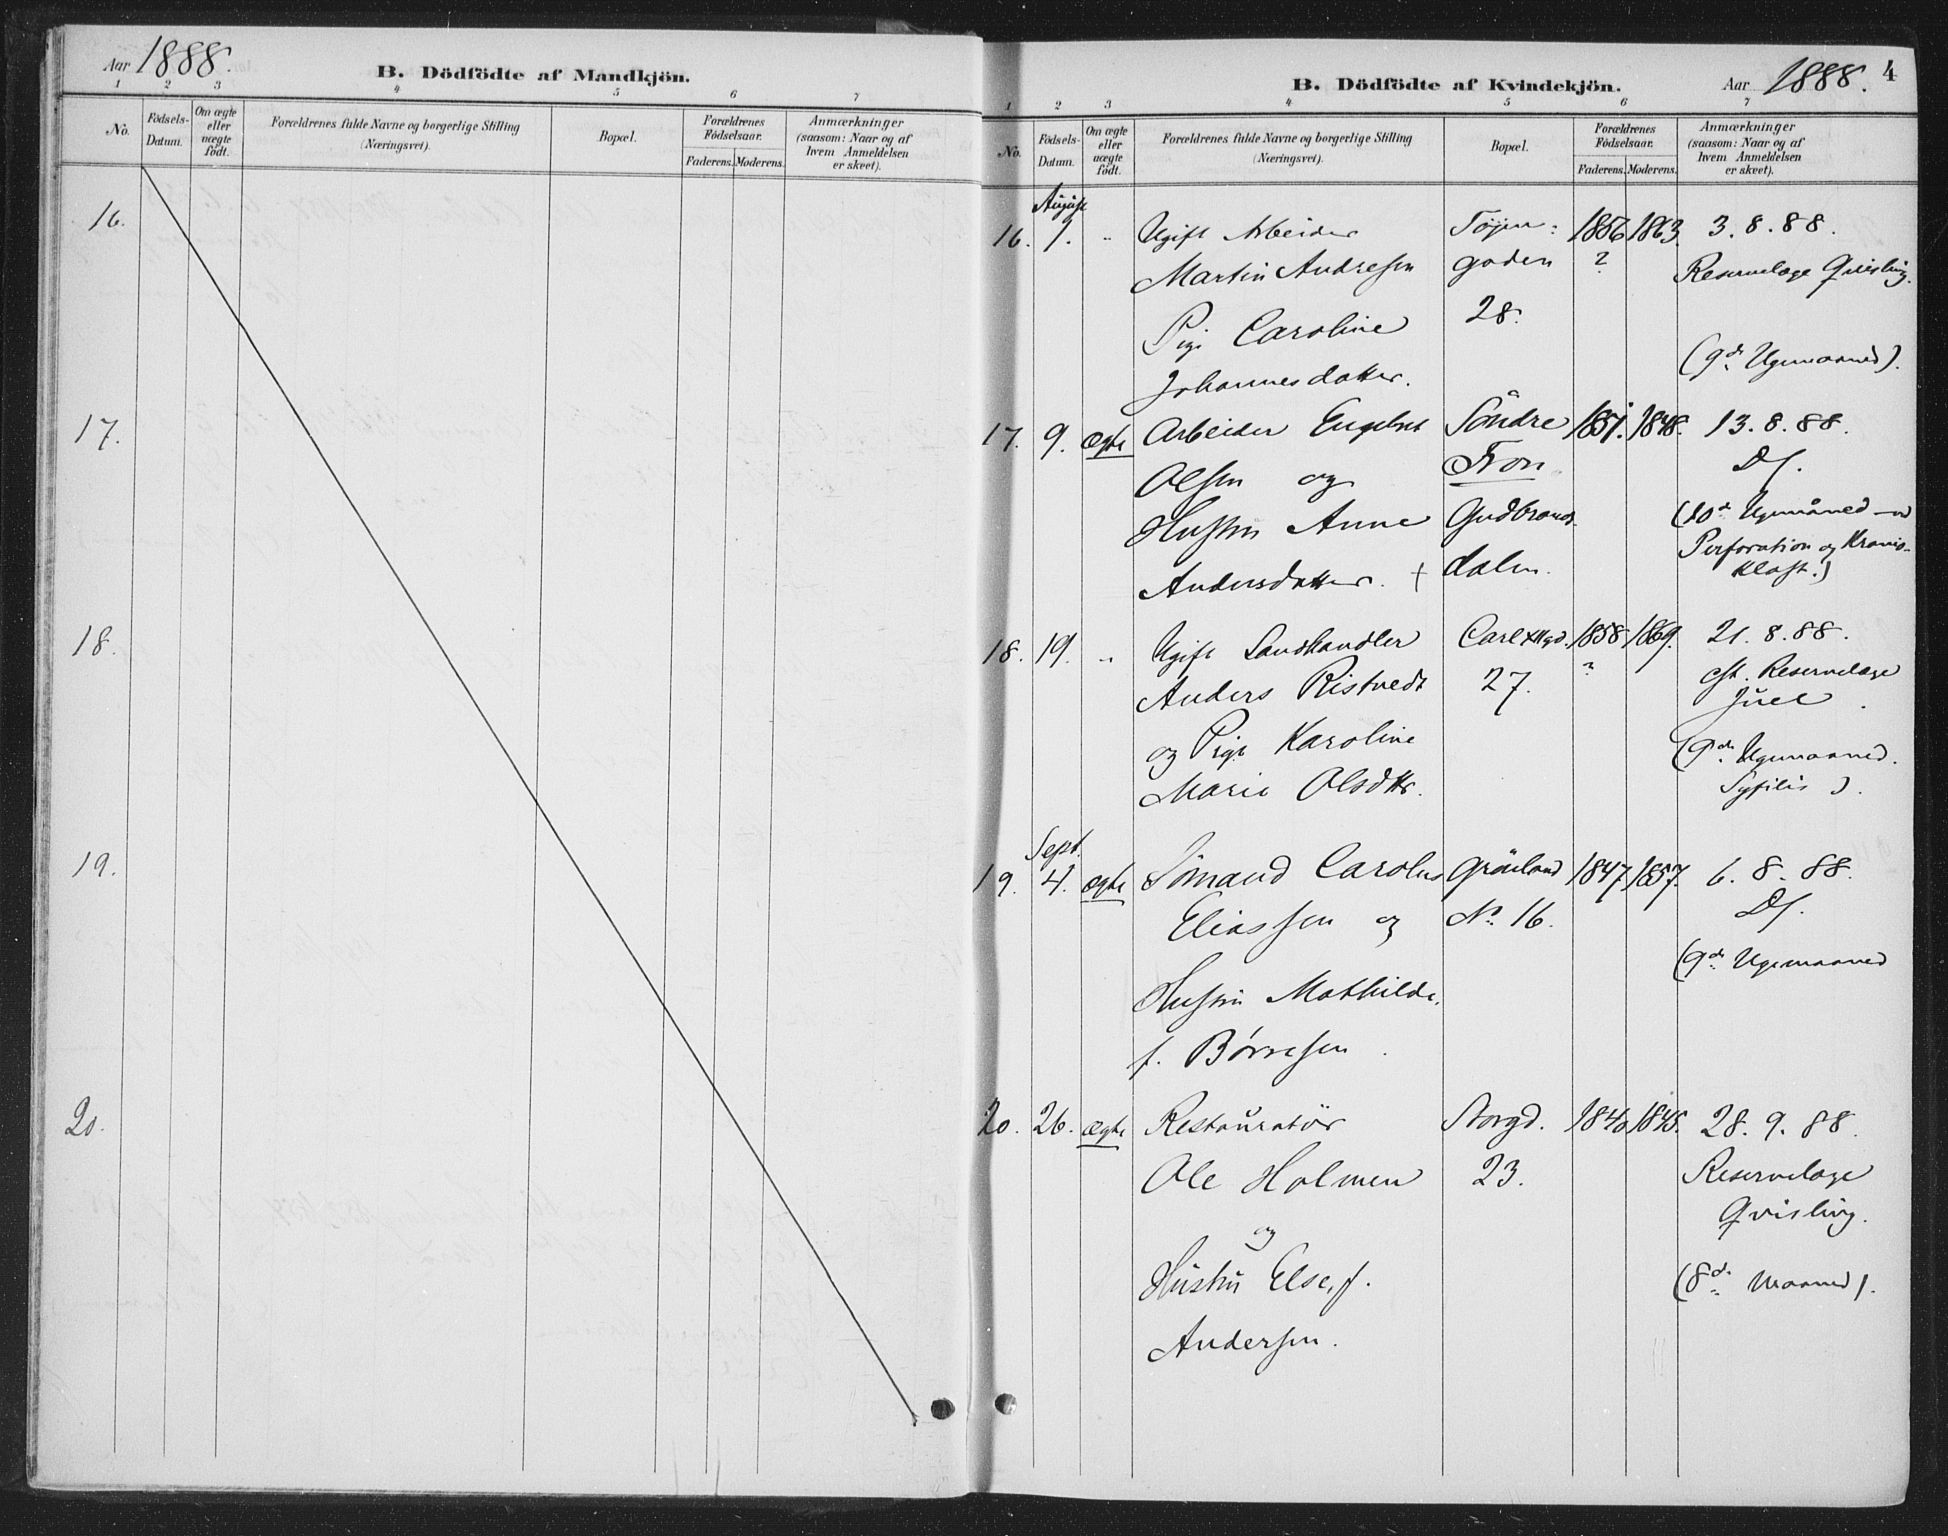 Aar 1888.
B. Dödfödte af Mandkjön.
1 2 3 4 5 6 7
No.
Födsels-
Datum.
Om ægte
eller
uægte
födt.
Forældrenes fulde Navne og borgerlige Stilling
(Næringsvei).
Bopæl.
Forældrenes
Födselsaar.
Faderens. Moderens.
Anmærkninger
(saasom: Naar og af
hvem Anmeldelsen
er skeet).
16.
17.
18.
19.
20.
B. Dödfödte af Kvindekjön.
Aar 1888. 4
1 2 3 4 5 6 7
No.
Födsels-
Datum.
Om ægte
eller
uægte
födt.
Forældrenes fulde Navne og borgerlige Stilling
(Næringsvei).
Bopæl.
Forældrenes
Födselsaar.
Faderens. Moderens.
Anmærkninger
(saasom: Naar og af
hvem Anmeldelsen
er skeet).
August
16. 1. " Ugift Arbeider Töjen- 1856 1863. 3. 8. 88.
Martin Andresen gaden ? Reservelæge Qvisling.
Pige Caroline 28.
(9de Ugemaaned).
Johannesdatter.
17. 9. ægte Arbeider Engebret Söndre 1851. 1848. 13. 8. 88.
Olsen og Fron Ds.
Hustru Anne Gudbrands- (10de Ugemåned
Perforation og Kranio-
Andersdatter. + dalen. klast.)
18. 19. " Ugift Sandhandler Carl XII gd. 1858 1869. 21. 8. 88.
Anders Ristvedt 27. ? cst. Reservelæge
Juel.
og Pige Karoline (9de Ugemaaned.
Marie Olsdtr. Syfilis).
Sept.
19. 4. ægte Sömand Carolus Grönland 1847 1857. 6. 8. 88.
Eliassen og No. 16. Ds.
(9de Ugemaaned
Hustru Mathilde,
f. Børresen.
20. 26. ægte Restauratör Storgd. 1840 1845. 28. 9. 88.
Ole Holmen 23. Reservelæge
og Qvisling.
Hustru Else, f. (8de Maaned).
Andersen.